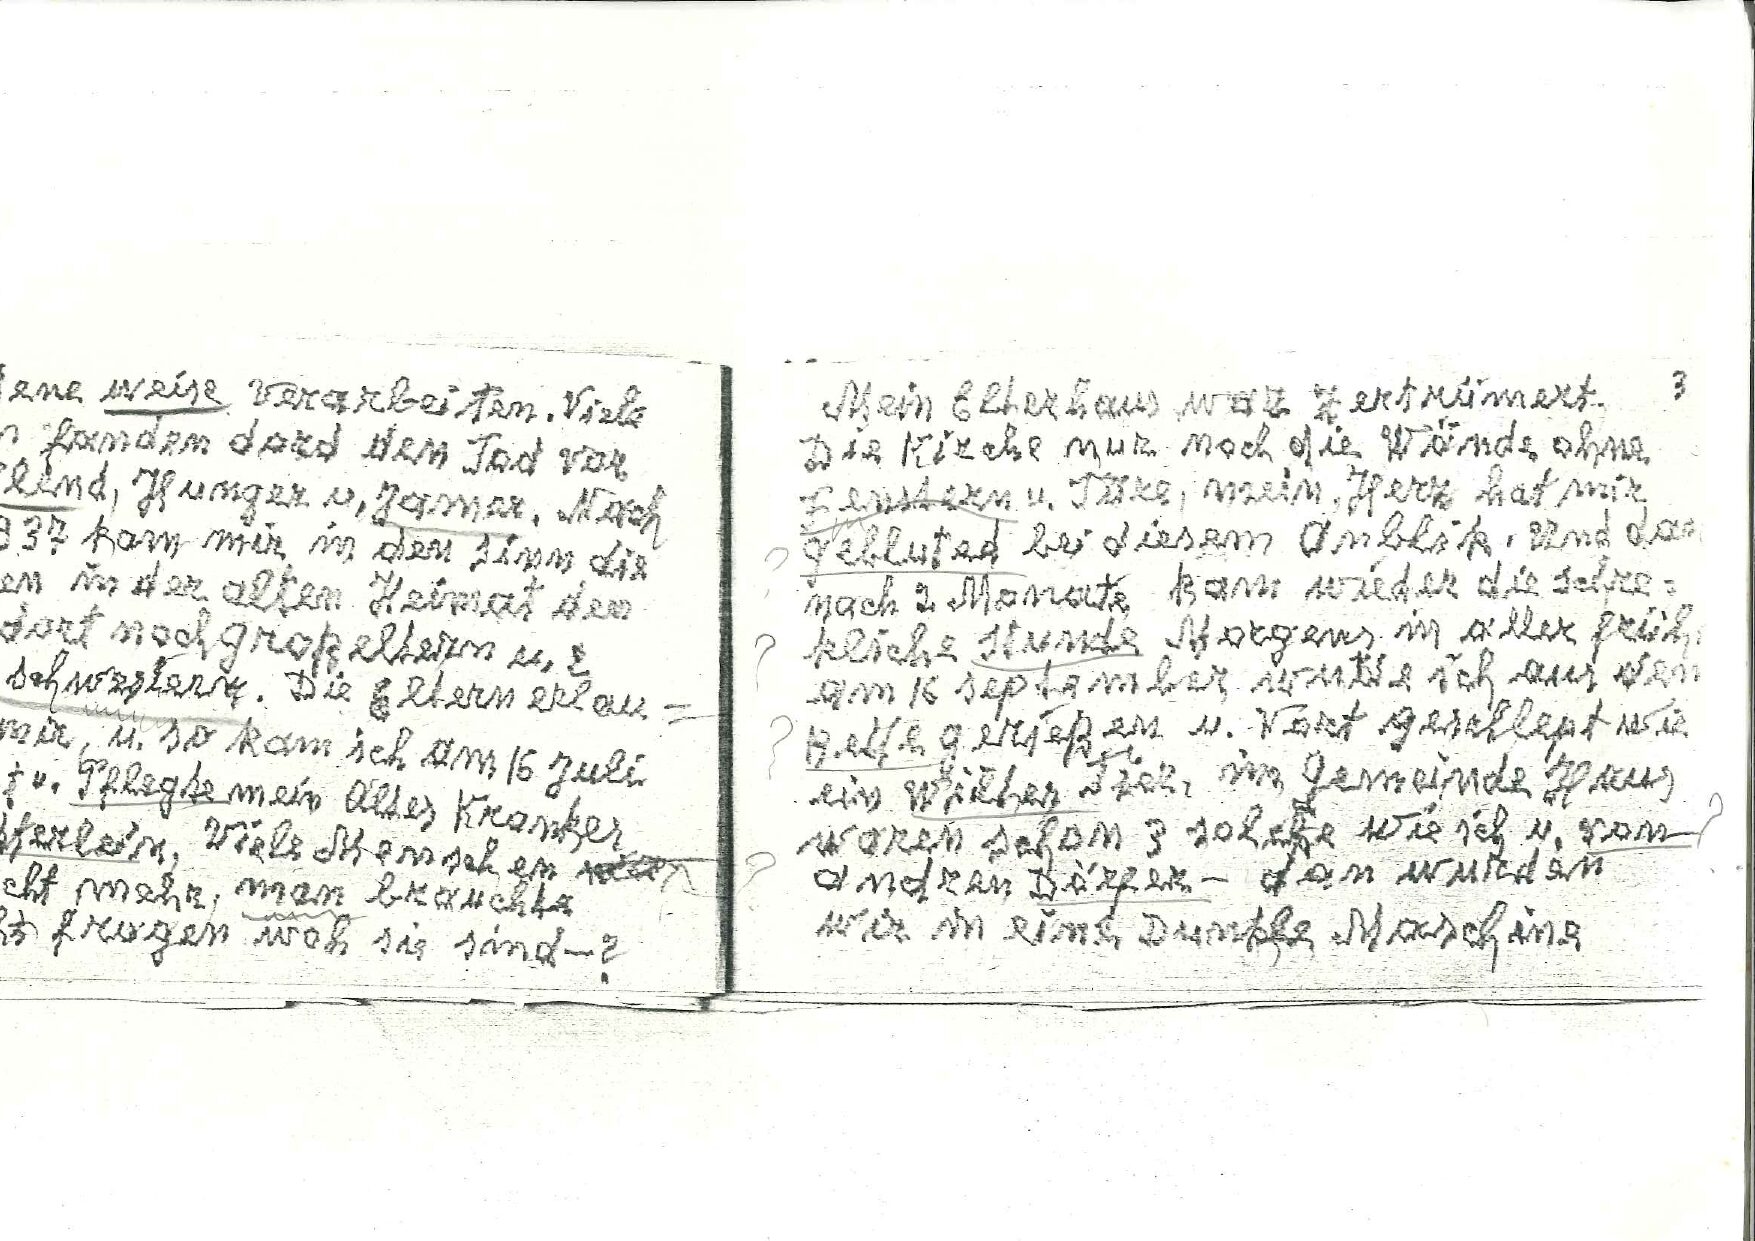 ene weise Verarbeiten. Viele
fanden dord den Tod vor
Elend, Hunger u, Jamer. Nach
937 kam mir in den sinn die
en in der alten Heimat den
dort noch großeltern u. 2
schwestern. Die Eltern erlau=
mir, u. so kam ich am 16 Juli
u. Pflegte mein Altes Krankes
Viele Menschen
cht mehr, man brauchte
frugen woh sie sind—?
3
Mein Elterhaus war Zertrümert.
Die Kirche nur noch die Wände ohne
Fenstern u. Türe, mein, Herz hat mir
gebluted bei diesem Anblik. Und dan
nach 2 Monate kam wieder die schre=
kliche stunde Morgens in aller früh
am 16 september wurde ich aus dem
Bette gerießen u. Vort geschlept wie
ein Wildes im Gemeinde Haus
waren schon 3 solche wie ich u. von
andren Dörfer — dan wurden
wir in eine Dunkle Maschine